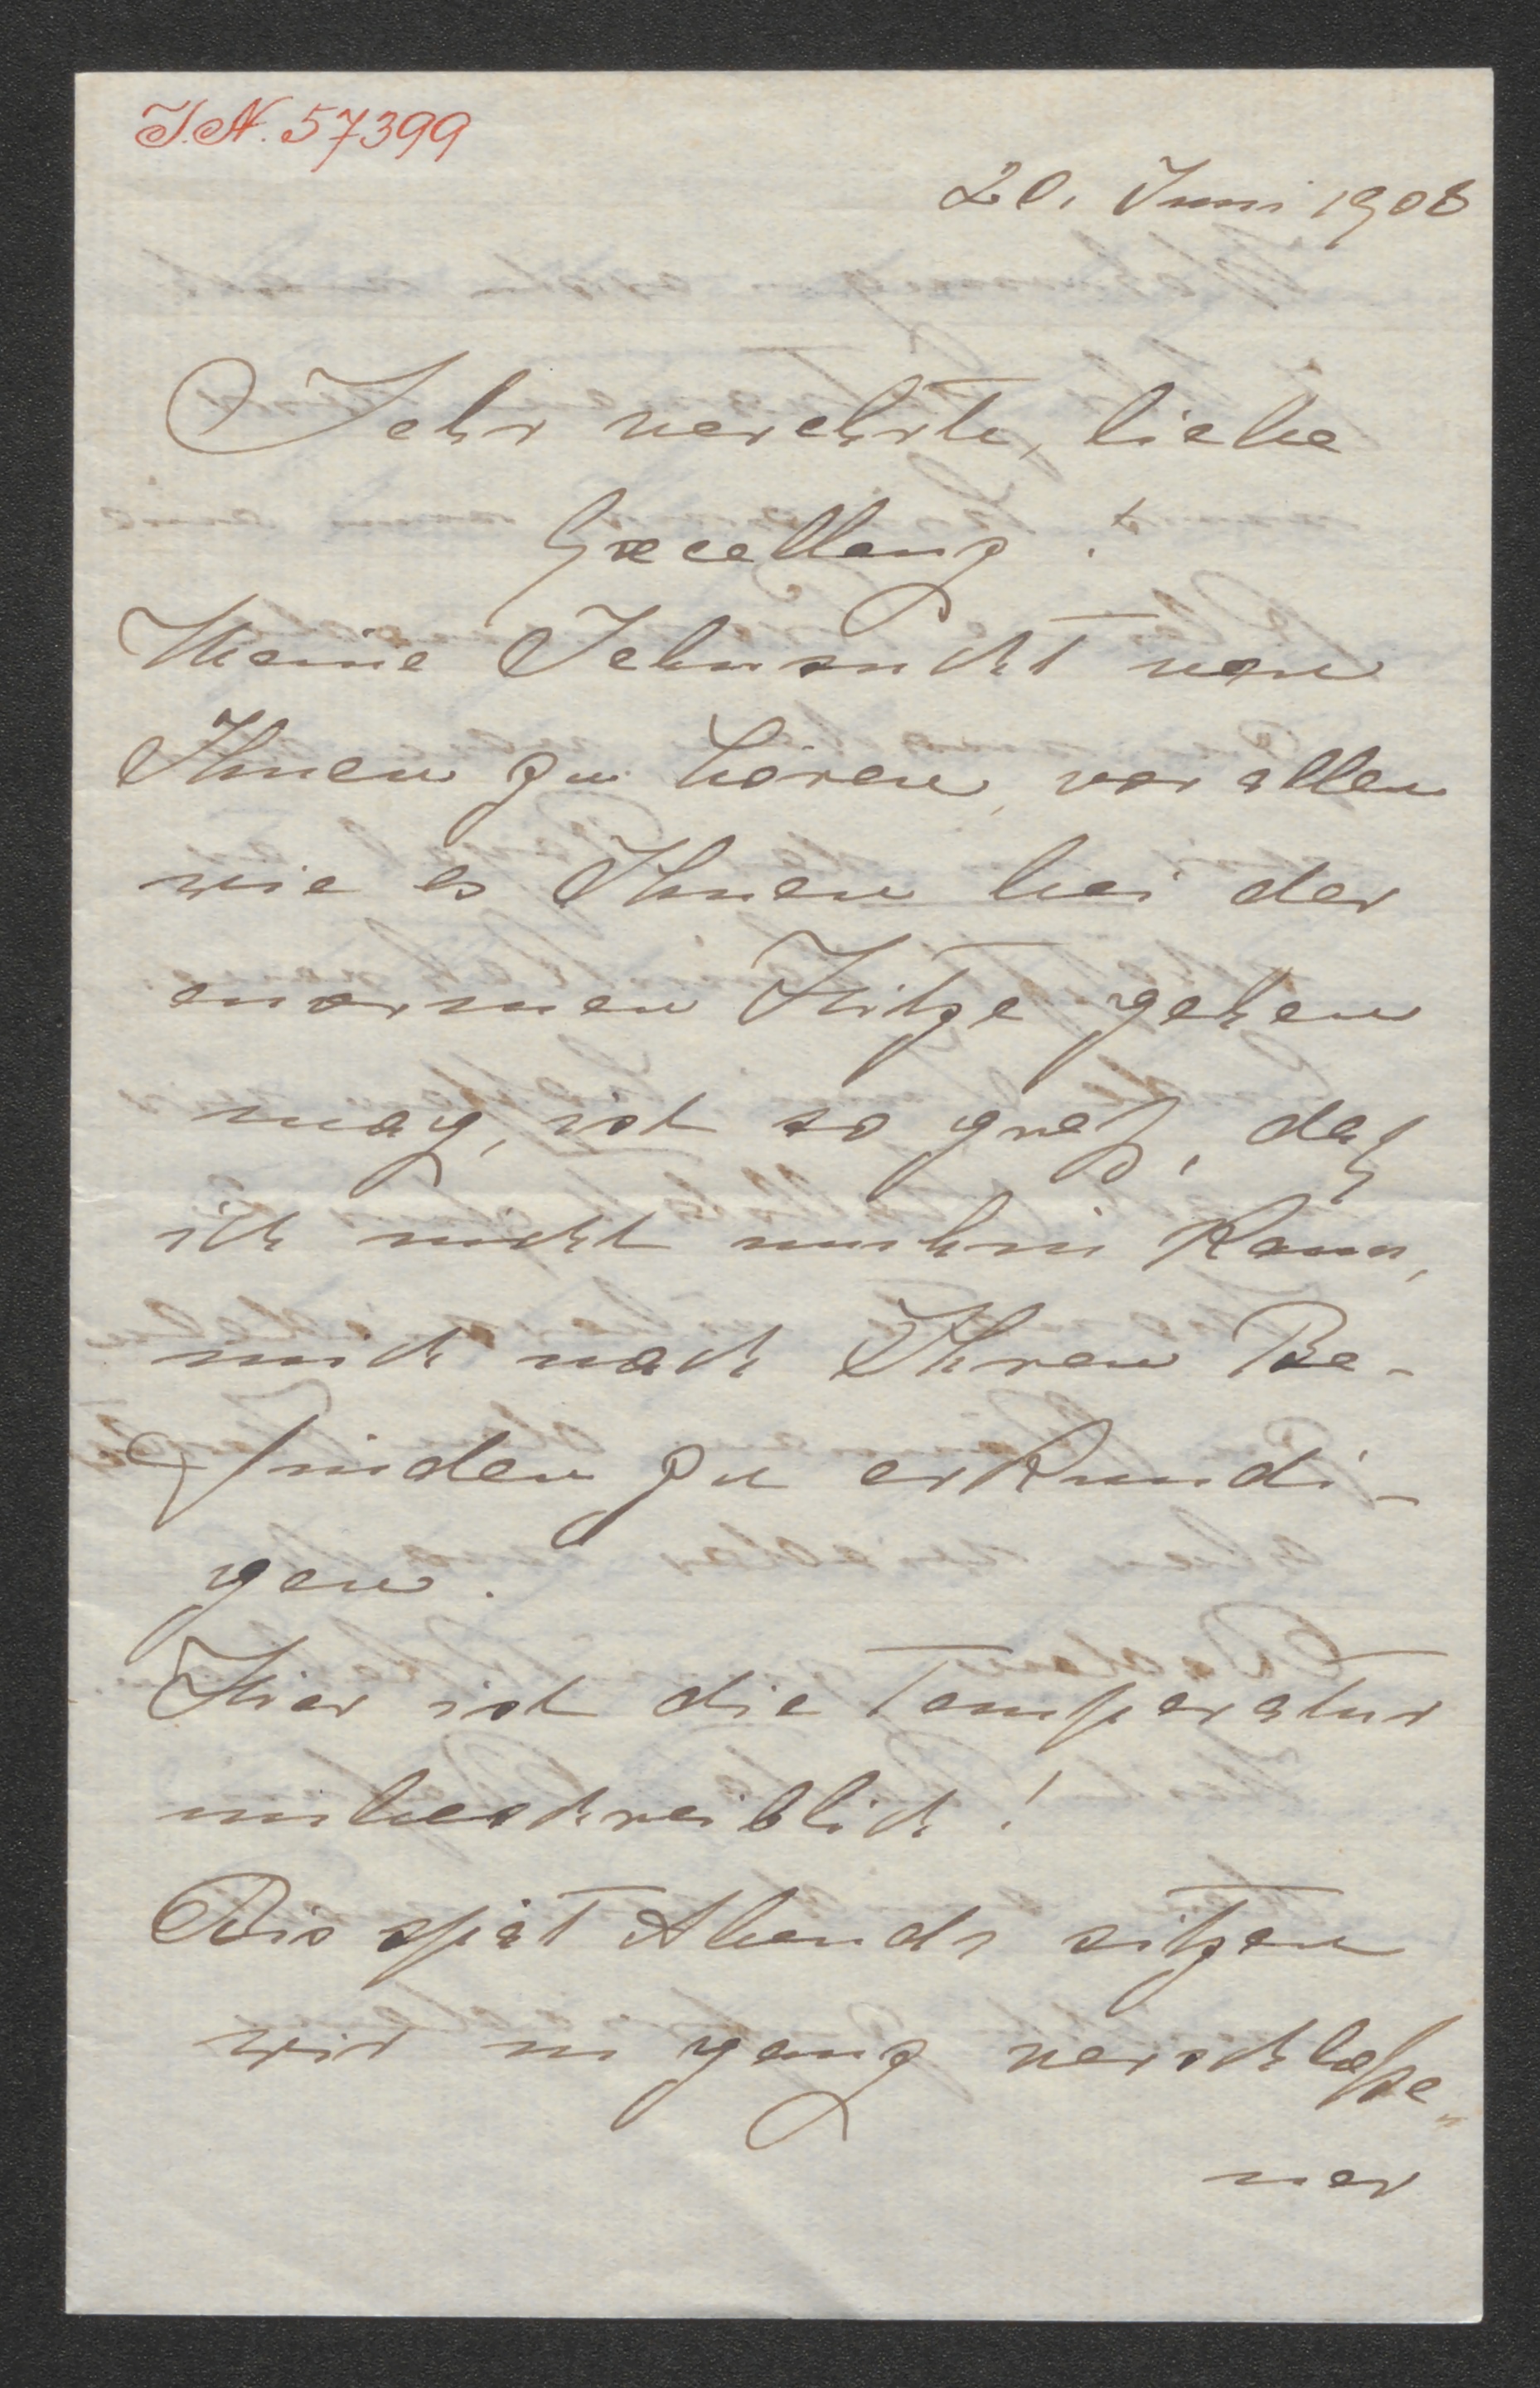 I.N. 57399
20. Juni 1908
Sehr verehrte, liebe
Excellenz!
Meine Sehnsucht von
Ihnen zu hören, vor allem
wie es Ihnen bei der
enormen Hitze gehen
mag, ist so groß, daß
ich nicht umhin kann,
mich nach Ihrem Be-
finden zu erkundi-
gen.
Hier ist die Temperatur
unbeschreiblich!
Bis spät Abends sitzen
wir in ganz verschloße-
ner